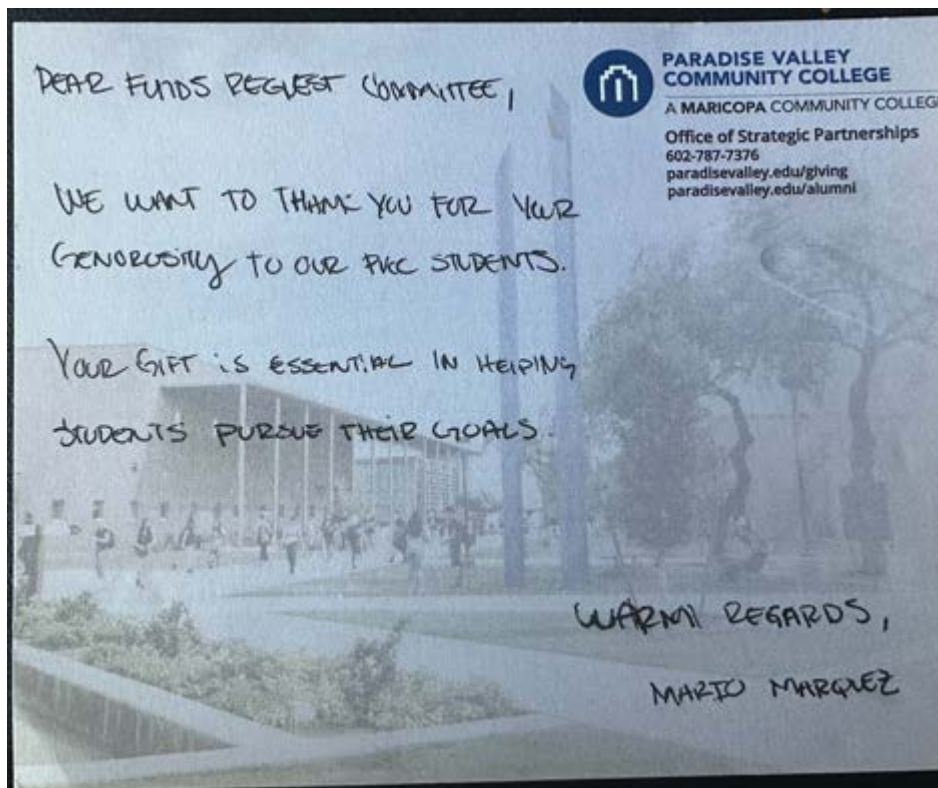 DEAR FUNDS REQUEST COMMITTEE,
PARADISE VALLEY
COMMUNITY COLLEGE
A MARICOPA COMMUNITY COLLEGE
Office of Strategic Partnerships
602-787-7376
paradisevalley.edu/giving
paradisevalley.edu/alumni
WE WANT TO THANK YOU FOR YOUR
GENOROSITY TO OUR PVCC STUDENTS.
YOUR GIFT IS ESSENTIAL IN HELPING
STUDENTS PURSUE THEIR GOALS.
WARM REGARDS,
MARIO MARQUEZ